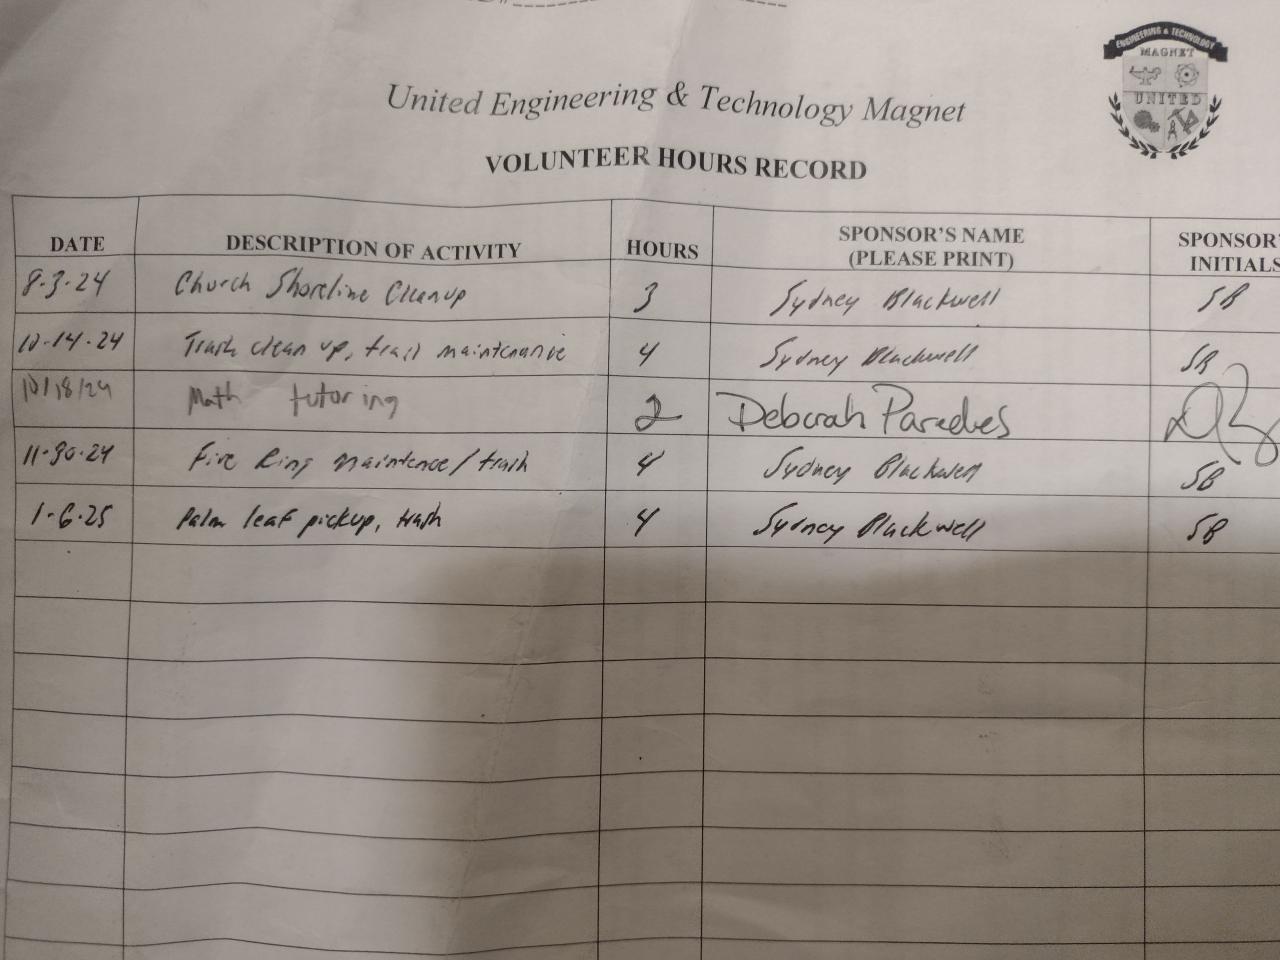 ENGINEERING & TECHNOLOGY
MAGNET
UNITED
United Engineering & Technology Magnet
VOLUNTEER HOURS RECORD
DATE DESCRIPTION OF ACTIVITY HOURS SPONSOR'S NAME (PLEASE PRINT) SPONSOR' INITIALS
8-3-24 Church Shoreline Cleanup 3 Sydney Blackwell SB
10-14-24 Trash clean up, trail maintenance 4 Sydney Blackwell SB
10/18/24 Math tutoring 2 Deborah Paredes
11-30-24 Fire Ring maintence/trash 4 Sydney Blackwell SB
1-6-25 Palm leaf pickup, trash 4 Sydney Blackwell SB